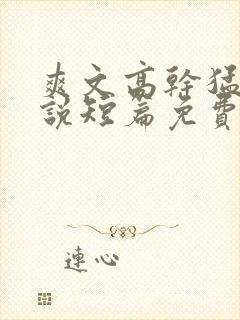 爽文高幹猛
說短篇免費
連心